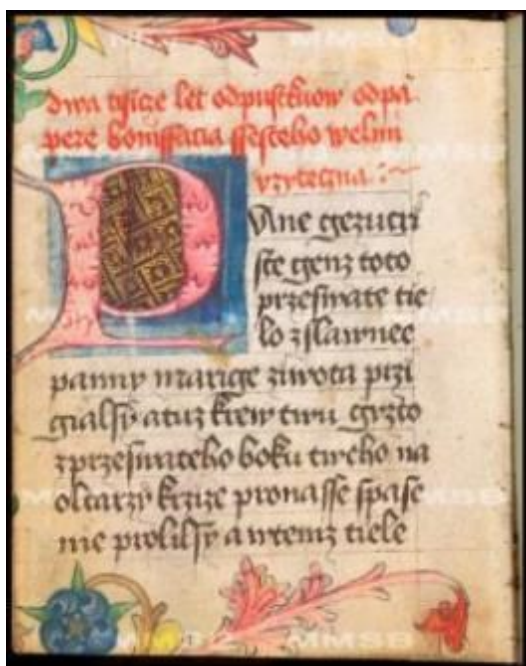 dwa tisicze let odpustkuow odpa
peze bonifacia ssesteho welmi
vzyteczna :~
PAne gezucri
ste genz toto
przeswate tie
lo zslawnee
panny marige ziwota przi
gialsy atuz krew twu gyzto
zprzeswateho boku tweho na
oltarzy krzize pronasse spase
nie prolilsy a wtemz tiele